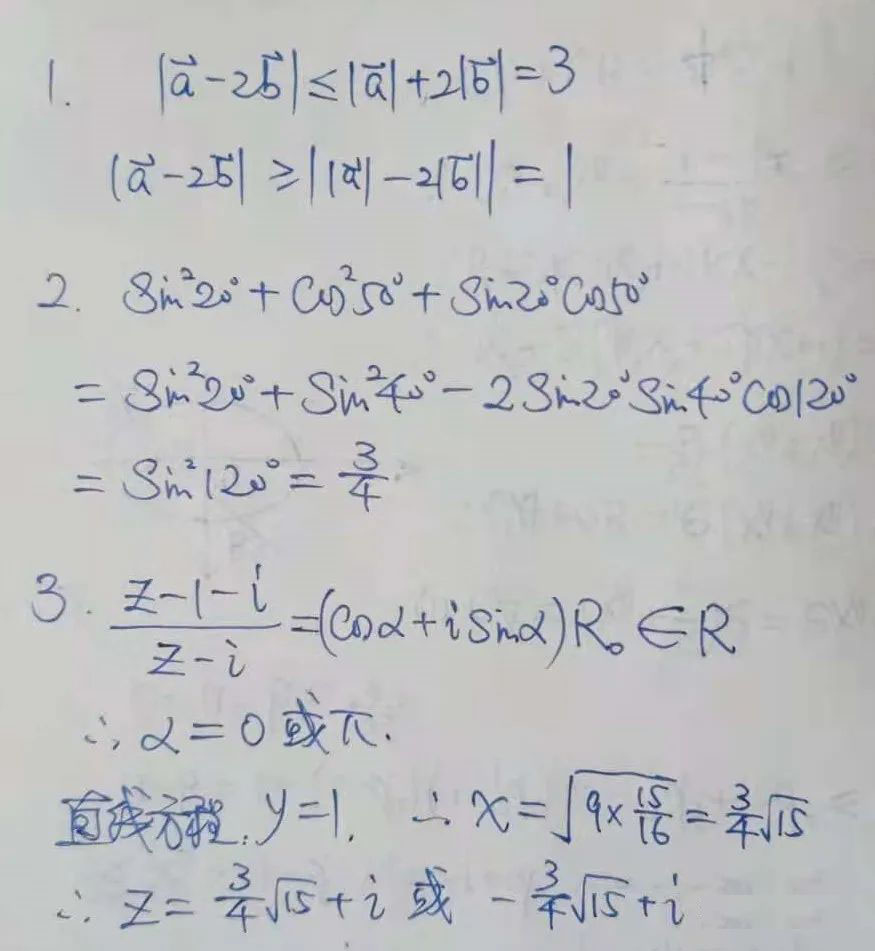 1. |a⃗-2b⃗|≤|a⃗|+2|b⃗|=3
|a⃗-2b⃗|≥||a⃗|-2|b⃗||=1
2. Sin²20°+Cos²50°+Sin20°Cos50°
=Sin²20°+Sin²40°-2Sin20°Sin40°Cos120°
=Sin²120°=3/4
3. (z-1-i)/(z-i)=(Cosα+iSinα)R₀∈R
∴α=0或π.
直线方程:y=1, ∴x=√(9×15/16)=3/4√15
∴z=3/4√15+i或-3/4√15+i